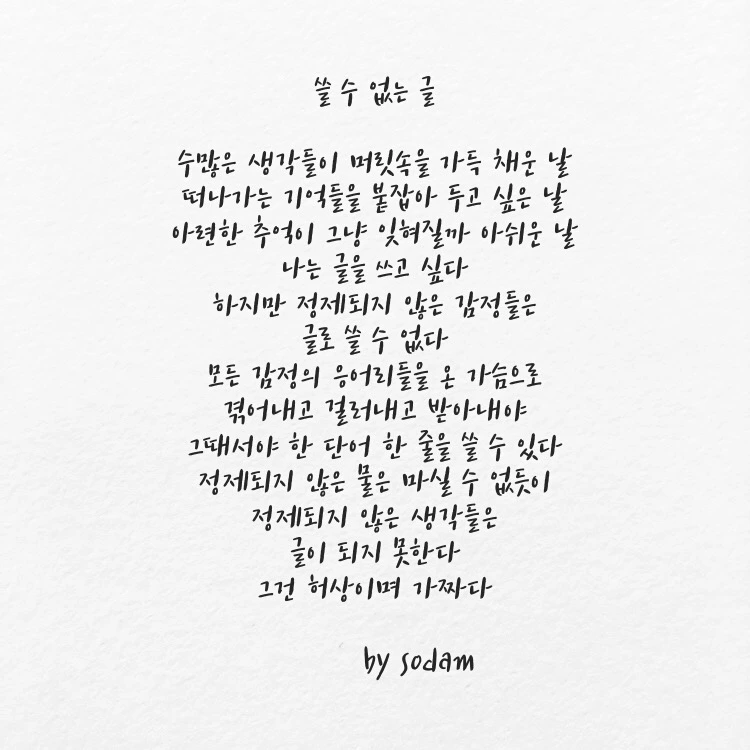 쓸 수 없는 글
수많은 생각들이 머릿속을 가득 채운 날
떠나가는 기억들을 붙잡아 두고 싶은 날
아련한 추억이 그냥 잊혀질까 아쉬운 날
나는 글을 쓰고 싶다
하지만 정제되지 않은 감정들은
글로 쓸 수 없다
모든 감정의 응어리들을 온 가슴으로
겪어내고 걸러내고 받아내야
그때서야 한 단어 한 줄을 쓸 수 있다
정제되지 않은 물은 마실 수 없듯이
정제되지 않은 생각들은
글이 되지 못한다
그건 허상이며 가짜다
by sodam